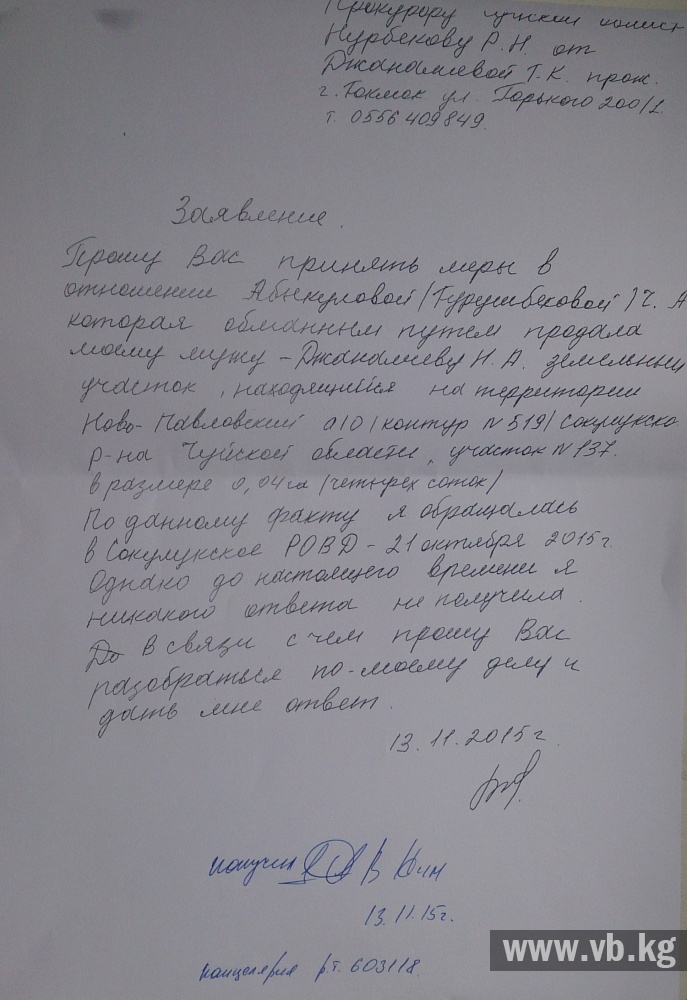 Прокурору чуйской
Нурбекову Р.Н. от
Джаналиевой Т.К. прож.
г. Токмок ул. Горького 200/1
т. 0556 409849.
Заявление.
Прошу Вас принять меры в
отношении Абыкуловой (Турушбековой) Ч. А
которая обманным путем продала
моему мужу - Джаналиеву Н.А. земельный
участок, находящийся на территории
Ново-Павловский а/о (контур N 519) Сокулукско
р-на Чуйской области, участок N 137.
в размере 0,04 га (четырех соток)
По данному факту я обращалась
в Сокулукское РОВД - 21 октября 2015г.
Однако до настоящего времени я
никакого ответа не получила.
До В связи с чем прошу Вас
разобраться по-моему делу и
дать мне ответ.
13.11.2015г
получил В Ким
13.11.15г.
канцелярия р.т. 603118
www.vb.kg